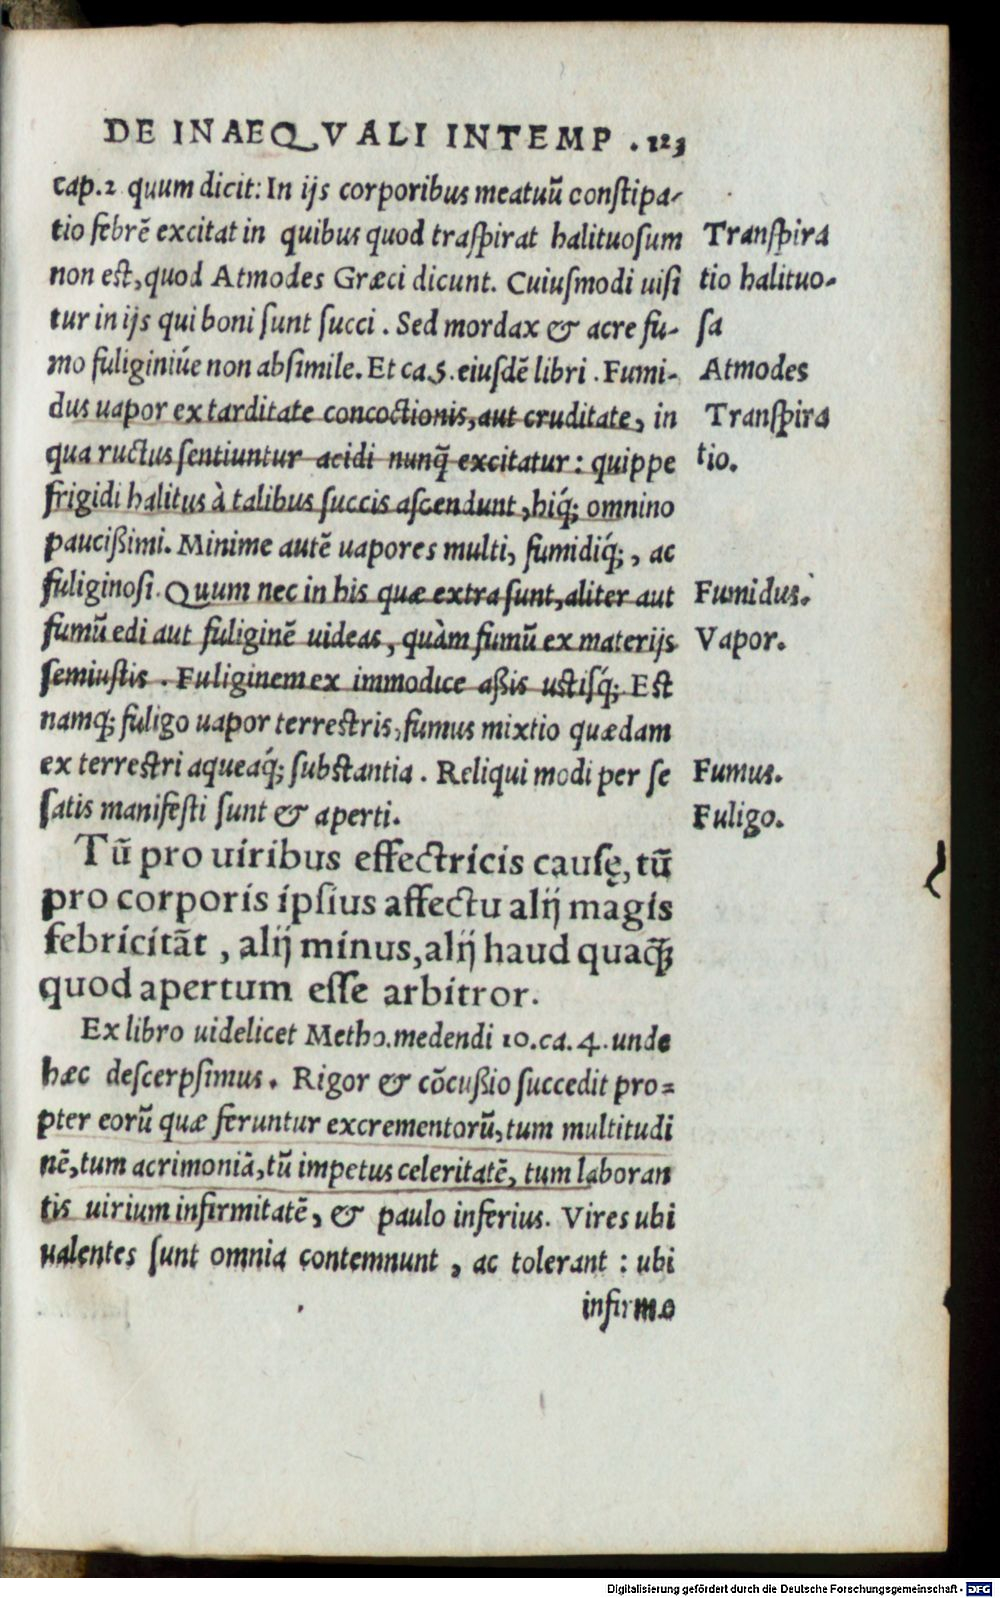 DE INAEQVALI INTEMP. 123
cap.2 quum dicit: In ijs corporibus meatuũ constipa-
tio febrẽ excitat in quibus quod trãspirat halituosum
non est, quod Atmodes Græci dicunt. Cuiusmodi uisi
tur in ijs qui boni sunt succi. Sed mordax & acre fu-
mo fuliginiúe non absimile. Et ca.5. eiusdẽ libri. Fumi-
dus uapor ex tarditate concoctionis, aut cruditate, in
qua ructus sentiuntur acidi nunq̃ excitatur: quippe
frigidi halitus à talibus succis ascendunt, hiq́; omnino
paucißimi. Minime autẽ uapores multi, fumidiq́;, ac
fuliginosi. Quum nec in his quæ extra sunt, aliter aut
fumũ edi aut fuliginẽ uideas, quàm fumũ ex materijs
semiustis. Fuliginem ex immodice aßis ustisq́;. Est
namq; fuligo uapor terrestris, fumus mixtio quædam
ex terrestri aqueaq́; substantia. Reliqui modi per se
satis manifesti sunt & aperti.
Tũ pro uiribus effectricis causę, tũ
pro corporis ipsius affectu alij magis
febricitãt, alij minus, alij haud quaq̃;
quod apertum esse arbitror.
Ex libro uidelicet Metho.medendi 10.ca.4. unde
hæc descerpsimus. Rigor & cõcußio succedit pro-
pter eorũ quæ feruntur excrementorũ, tum multitudi
nẽ, tum acrimoniã, tũ impetus celeritatẽ, tum laboran
tis uirium infirmitatẽ, & paulo inferius. Vires ubi
ualentes sunt omnia contemnunt, ac tolerant: ubi
infirmo
Transpira
tio halituo-
sa
Atmodes
Transpira
tio.
Fumidus.
Vapor.
Fumus.
Fuligo.
Digitalisierung gefördert durch die Deutsche Forschungsgemeinschaft - DFG